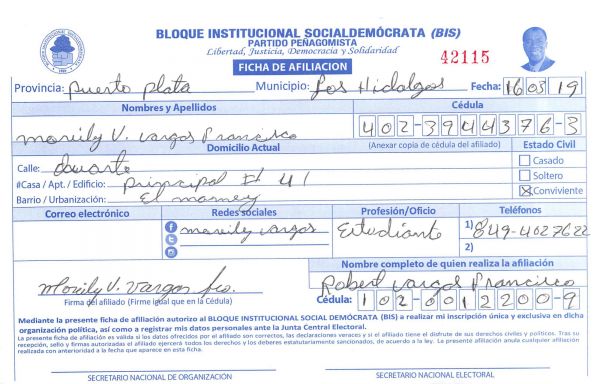 BLOQUE INSTITUCIONAL SOCIALDEMÓCRATA (BIS)
PARTIDO PEÑAGOMISTA
Libertad, Justicia, Democracia y Solidaridad
42115
FICHA DE AFILIACION
Provincia: Puerto Plata Municipio: Los Hidalgos Fecha: 16 03 19
Nombres y Apellidos Cédula
Moreily V. Vargas Francisco 402-3944376-3
Domicilio Actual (Anexar copia de cédula del afiliado) Estado Civil
Calle: Duarte Casado
#Casa / Apt. / Edificio: Principal # 41 Soltero
Barrio / Urbanización: El mamey Conviviente
Correo electrónico Redes sociales Profesión/Oficio Teléfonos
moreily vargas Estudiante 1) 849-4027622
2)
Nombre completo de quien realiza la afiliación
Moreily V. Vargas fco. Robert Vargas Francisco
Firma del afiliado (Firme igual que en la Cédula) Cédula: 102-0012200-9
Mediante la presente ficha de afiliación autorizo al BLOQUE INSTITUCIONAL SOCIAL DEMÓCRATA (BIS) a realizar mi inscripción única y exclusiva en dicha
organización política, así como a registrar mis datos personales ante la Junta Central Electoral.
La presente ficha de afiliación es válida si los datos ofrecidos por el afiliado son correctos, las declaraciones veraces y si el afiliado tiene el disfrute de sus derechos civiles y políticos. Tras su
recepción, sello y firmas autorizadas el afiliado ejercerá todos los derechos y los deberes estatutariamente sancionados, de acuerdo a la ley. La presente afiliación anula cualquier afiliación
realizada con anterioridad a la fecha que aparece en esta ficha.
SECRETARIO NACIONAL DE ORGANIZACIÓN SECRETARIO NACIONAL ELECTORAL